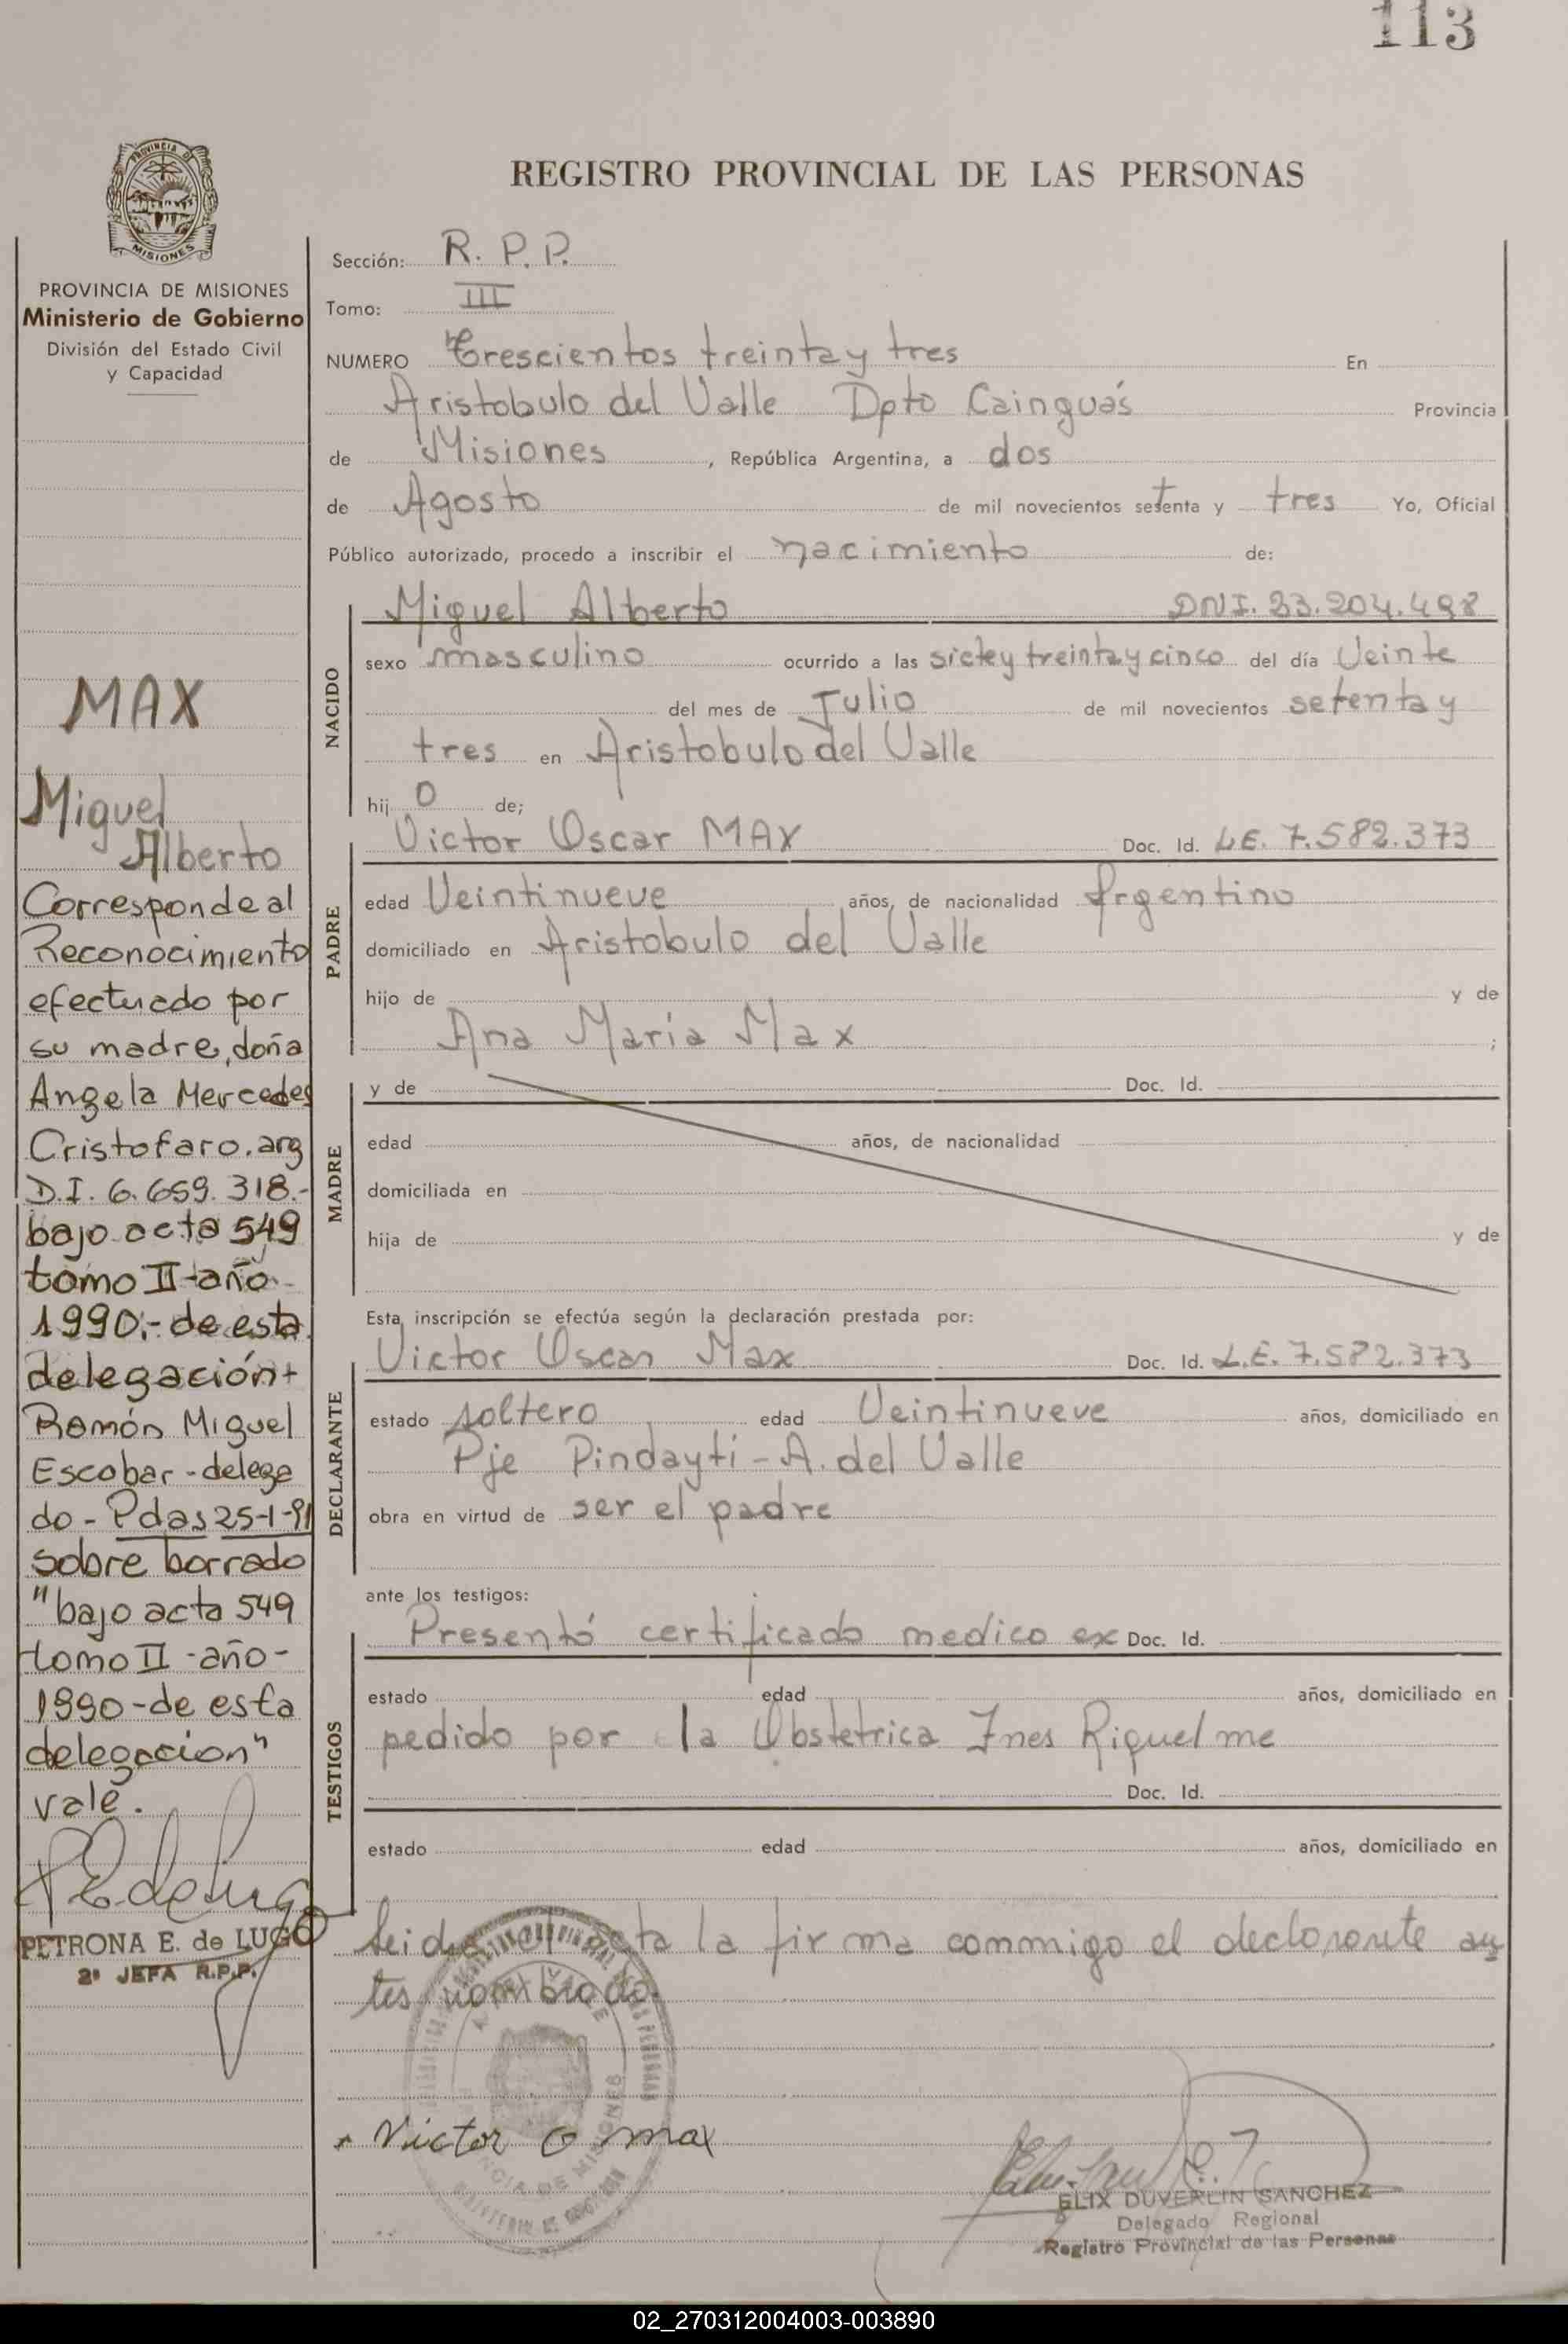 113
REGISTRO PROVINCIAL DE LAS PERSONAS
PROVINCIA DE MISIONES
PROVINCIA DE MISIONES
Ministerio de Gobierno
División del Estado Civil
y Capacidad
MAX
Miguel
Alberto
Corresponde al
Reconocimiento
efectuado por
su madre, doña
Angela Mercedes
Cristofaro. arg
D.I. 6.659.318.-
bajo acta 549
tomo II - año -
1990.- de esta
delegación +
Ramón Miguel
Escobar - delega
do - Pdas 25-1-91
sobre borrado
"bajo acta 549
tomo II - año -
1990 - de esta
delegacion"
vale.
PETRONA E. de LUGO
2ª JEFA R.P.P.
Sección: R. P. P.
Tomo: III
NUMERO Trescientos treinta y tres En
Aristobulo del Valle Dpto Cainguás Provincia
de Misiones, República Argentina, a dos
de Agosto de mil novecientos setenta y tres Yo, Oficial
Público autorizado, procedo a inscribir el nacimiento de:
NACIDO
Miguel Alberto DNI. 23.204.498
sexo masculino ocurrido a las siete y treinta y cinco del día Veinte
del mes de Julio de mil novecientos setenta y
tres en Aristobulo del Valle
hij o de;
PADRE
Victor Oscar MAX Doc. Id. LE. 7.582.373
edad Veintinueve años, de nacionalidad Argentino
domiciliado en Aristobulo del Valle
hijo de y de
Ana María Max ;
MADRE
y de Doc. Id.
edad años, de nacionalidad
domiciliada en
hija de y de
Esta inscripción se efectúa según la declaración prestada por:
DECLARANTE
Victor Oscar Max Doc. Id. L.E. 7.582.373
estado soltero edad Veintinueve años, domiciliado en
Pje Pindaytí - A. del Valle
obra en virtud de ser el padre
ante los testigos:
TESTIGOS
Presentó certificado medico ex Doc. Id.
estado edad años, domiciliado en
pedido por la Obstetrica Ines Riquelme
Doc. Id.
estado edad años, domiciliado en
Leida el acta la firma conmmigo el declarante an
tes nombrado.
Victor O max
ELIX DUVERLIN SANCHEZ
Delegado Regional
Registro Provincial de las Personas
02_270312004003-003890